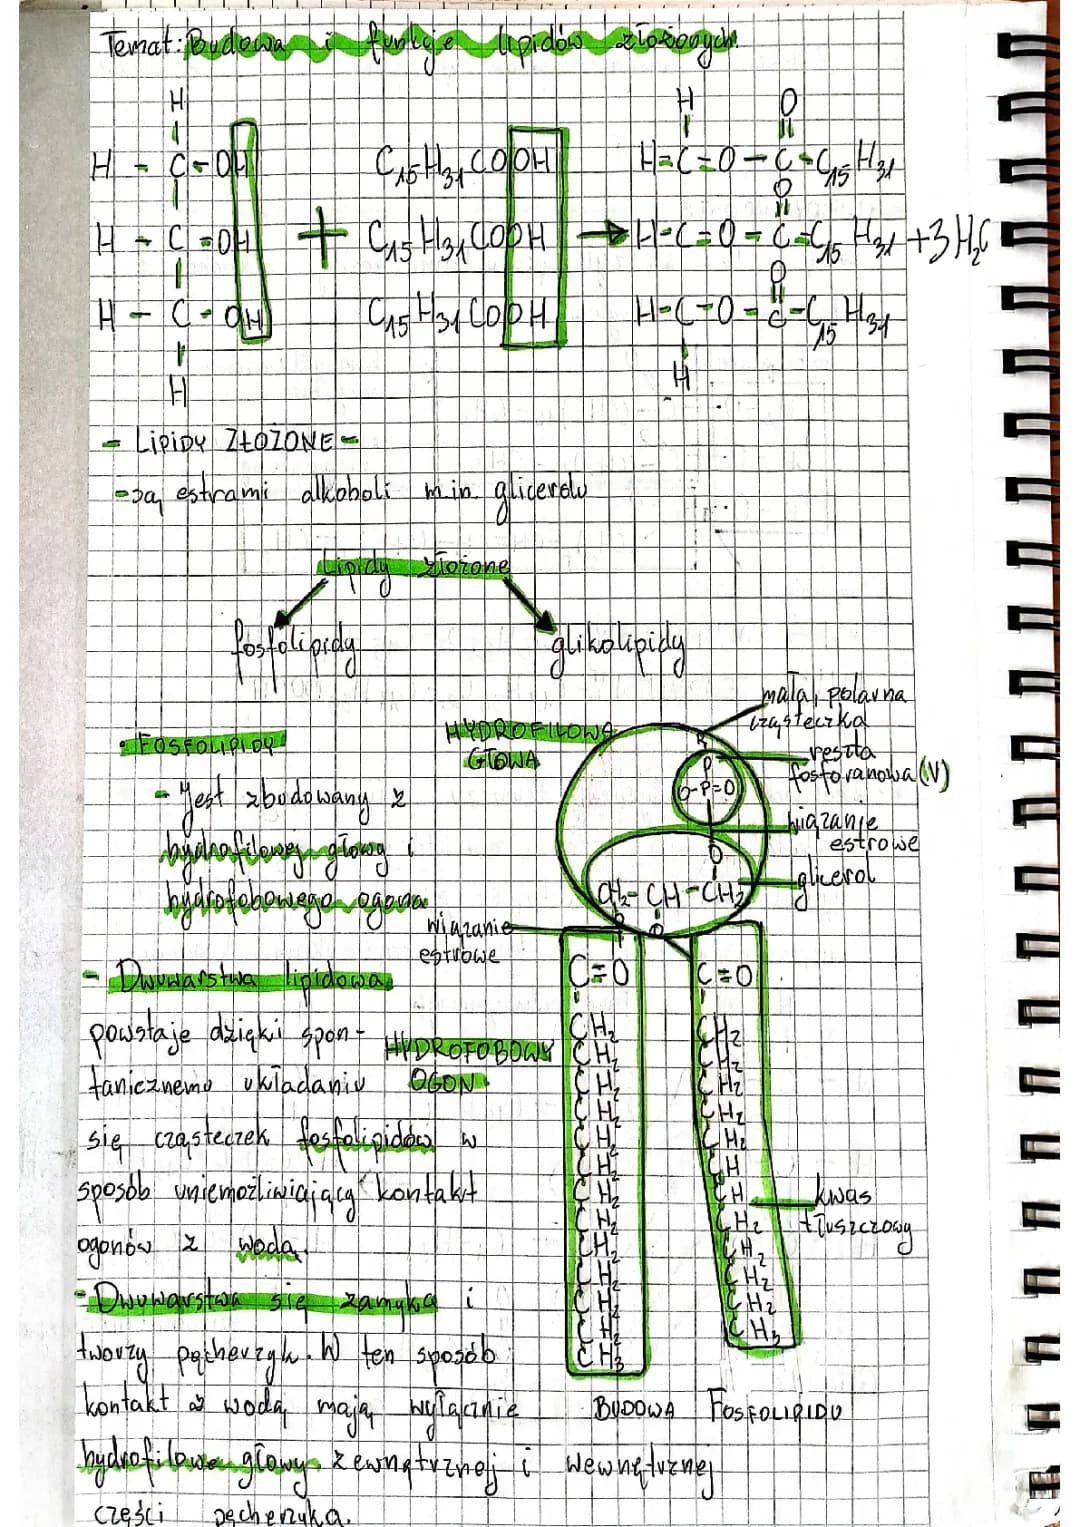 Temat: Budowa i funkcje lipidów złożonych.
H H O
H - C - OH C15H31COOH H-C-O-C-C15H31
O
H - C - OH + C15H31COOH → H-C-O-C-C15H31 + 3H2O
O
H - C - OH C15H31COOH H-C-O-C-C15H31
H H
- LIPIDY ZŁOŻONE -
- są estrami alkoholi m.in. glicerolu
Lipidy złożone
fosfolipidy glikolipidy
• FOSFOLIPIDY
- Jest zbudowany z
hydrofilowej głowy i
hydrofobowego ogona
- Dwuwarstwa lipidowa
powstaje dzięki spon-
tanicznemu układaniu
się cząsteczek fosfolipidów w
sposób uniemożliwiający kontakt
ogonów z wodą.
- Dwuwarstwa się zamyka i
tworzy pęcherzyk. W ten sposób
kontakt z wodą mają wyłącznie
hydrofilowe głowy zewnętrznej i wewnętrznej
części pęcherzyka.
HYDROFILOWA
GŁOWA
mała, polarna
cząsteczka
reszta
fosforanowa (V)
wiązanie
estrowe
glicerol
O-P=O
O
CH2 - CH - CH2
O O
wiązanie
estrowe
HYDROFOBOWY
OGON
C=O
CH2
CH2
CH2
CH2
CH2
CH2
CH2
CH2
CH2
CH2
CH2
CH2
CH3
C=O
CH2
CH2
CH2
CH2
CH2
CH
CH
CH2
CH2
CH2
CH2
CH3
kwas
tłuszczowy
BUDOWA FOSFOLIPIDU